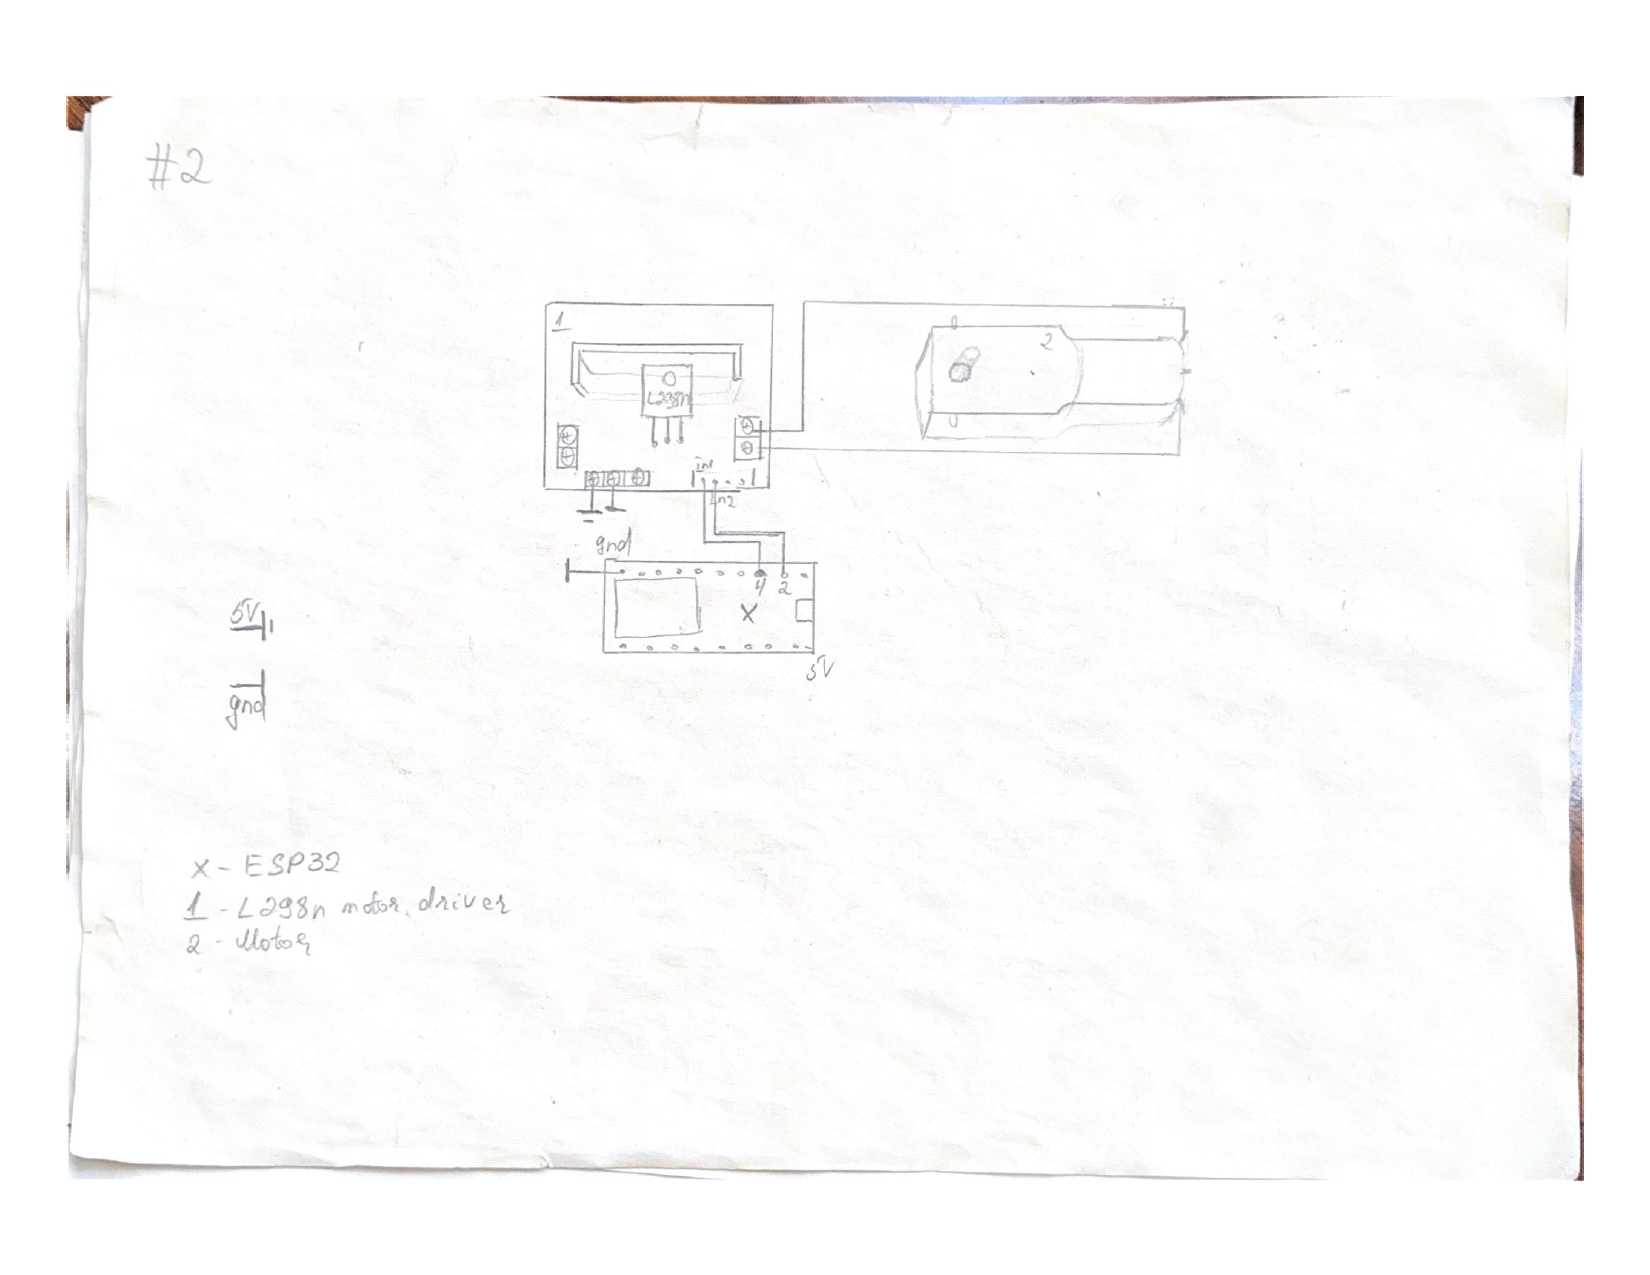 #2
1
2
L298n
in1
in2
gnd
4 2
X
5V
5V
gnd
X - ESP32
1 - L298n motor driver
2 - Motor